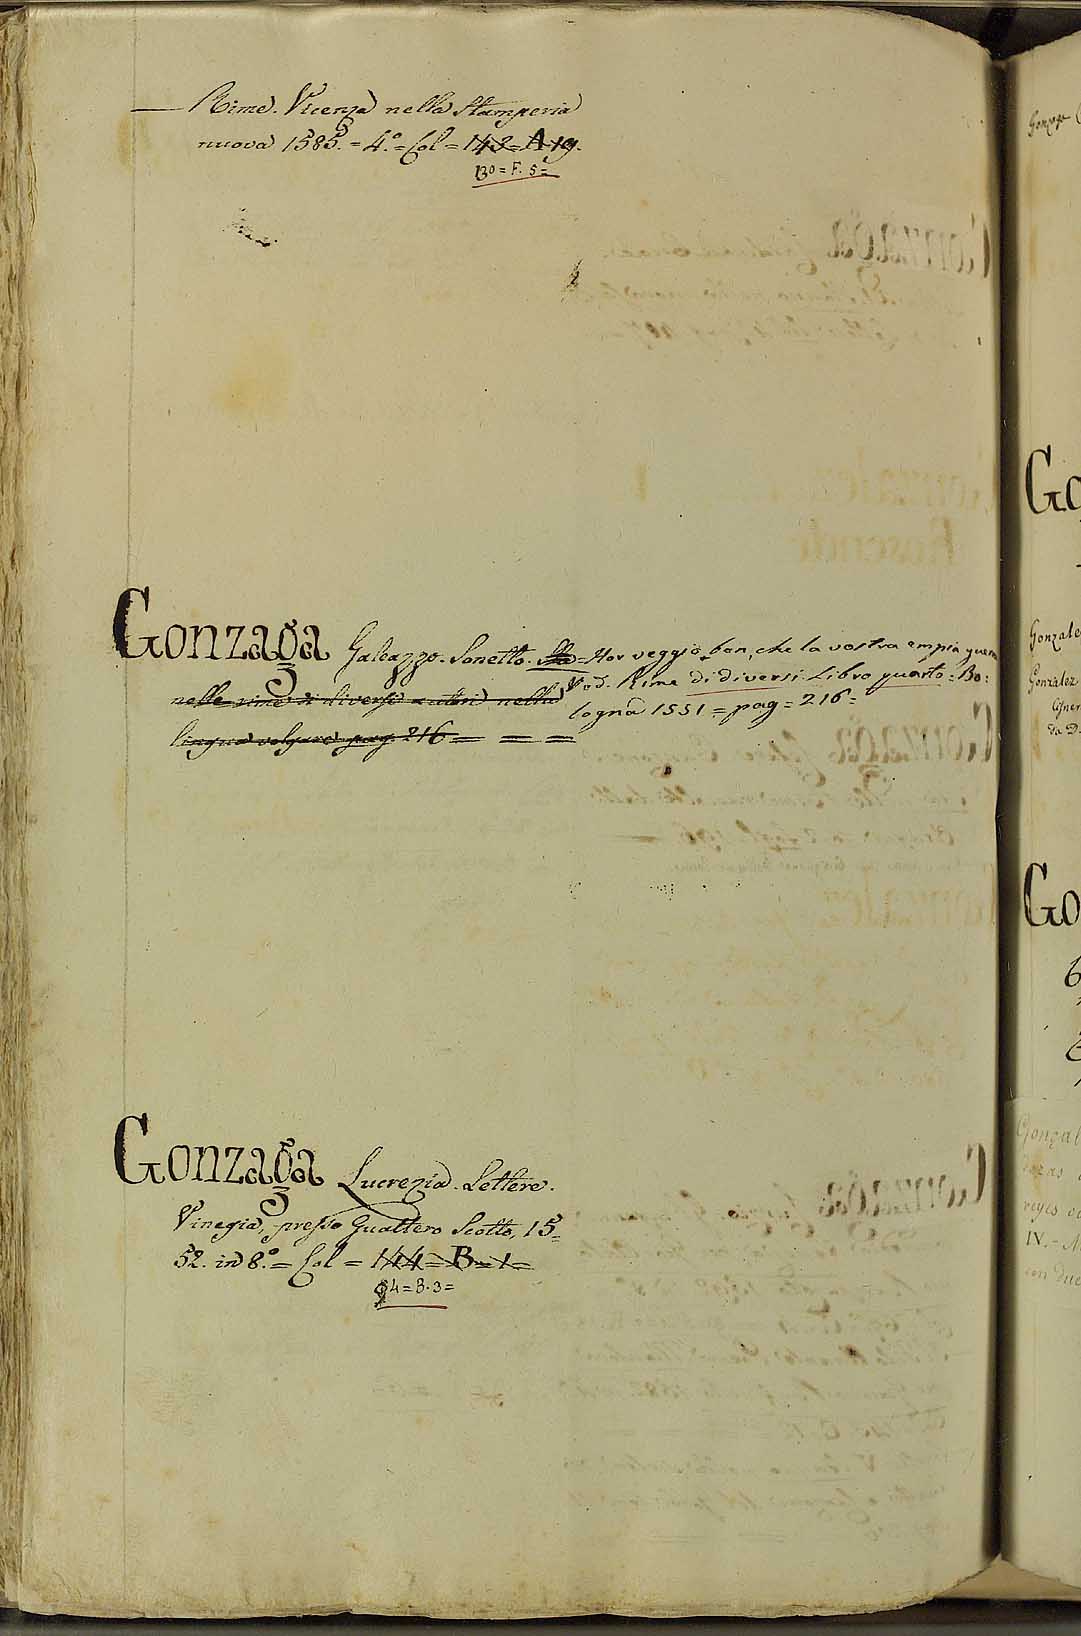 — Rime. Vicenza nella Stamperia
nuova 1585. = 4.° = Col = 143 = A 19.
130 = F. 5 =
Gonzaga Galeazzo. Sonetto. = Hor veggio ben, che la vostra empia guerra
nelle rime di diversi autori nella
Ved. Rime di diversi Libro quarto = Bo:
lingua volgare pag. 216 = = =
logna 1551 = pag = 216 =
Gonzaga Lucrezia. Lettere.
Vinegia, presso Gualtero Scotto, 15=
52. in 8.° = Col = 144 = B = 1 =
54 = B. 3 =
Gonzaga
Go
Gonzale
Gonzalez
da D.
Go
Gonzal
reyes
IV. =
con duc